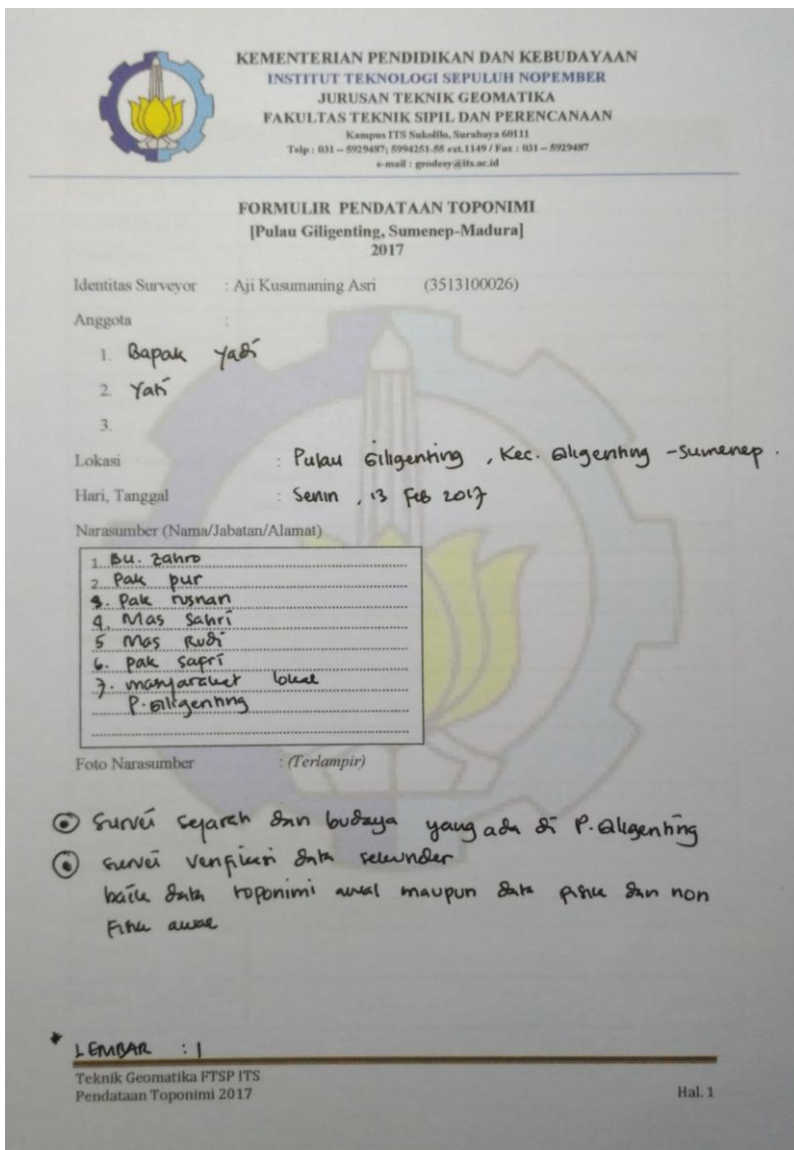 KEMENTERIAN PENDIDIKAN DAN KEBUDAYAAN
INSTITUT TEKNOLOGI SEPULUH NOPEMBER
JURUSAN TEKNIK GEOMATIKA
FAKULTAS TEKNIK SIPIL DAN PERENCANAAN
Kampus ITS Sukolilo, Surabaya 60111
Telp : 031 – 5929487; 5994251-55 ext.1149 / Fax : 031 – 5929487
e-mail : geodesy@its.ac.id
FORMULIR PENDATAAN TOPONIMI
[Pulau Giligenting, Sumenep-Madura]
2017
Identitas Surveyor : Aji Kusumaning Asri (3513100026)
Anggota :
1. Bapak Yadi
2. Yati
3.
Lokasi : Pulau Giligenting , Kec. Giligenting - Sumenep .
Hari, Tanggal : Senin , 13 Feb 2017
Narasumber (Nama/Jabatan/Alamat)
1. Bu. Zahro
2. Pak pur
3. Pak rusnan
4. Mas Sahri
5 Mas Rudi
6. pak sapri
7. masyarakat lokal
P. Giligenting
Foto Narasumber : (Terlampir)
survei sejarah dan budaya yang ada di P. Giligenting
survei verifikasi data sekunder
baik data toponimi awal maupun data fisik dan non
Fisik awal
* LEMBAR : 1
Teknik Geomatika FTSP ITS
Pendataan Toponimi 2017 Hal. 1